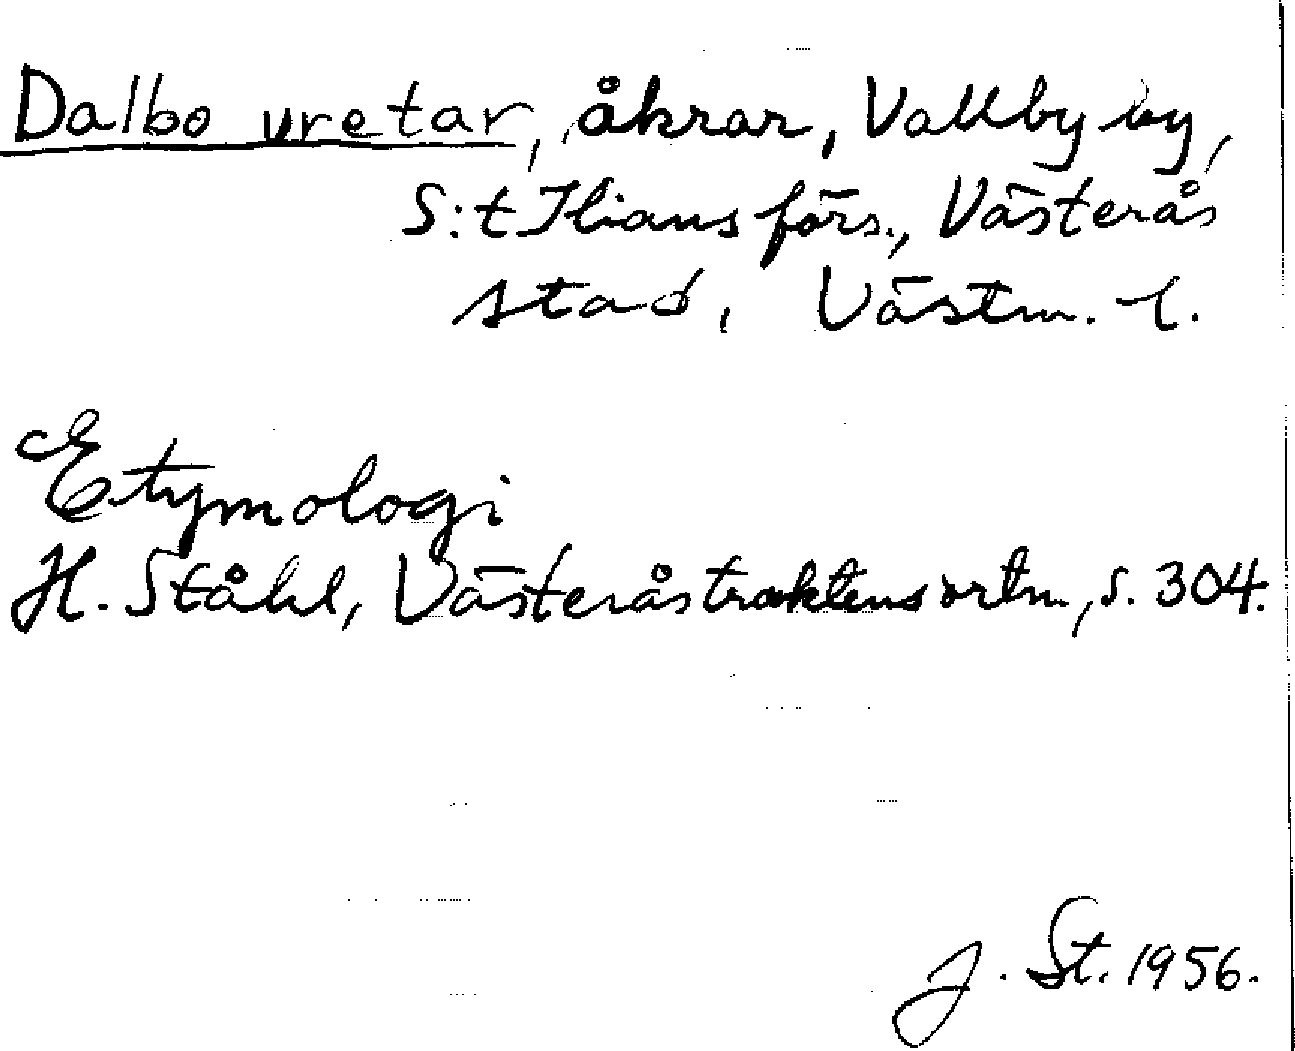 Dalbo vretar, åkrar, Vallby by,
S:t Ilians förs., Västerås
stad, Västm. l.
Etymologi
H. Ståhl, Västeråstraktens ortn., s. 304.
J. St. 1956.